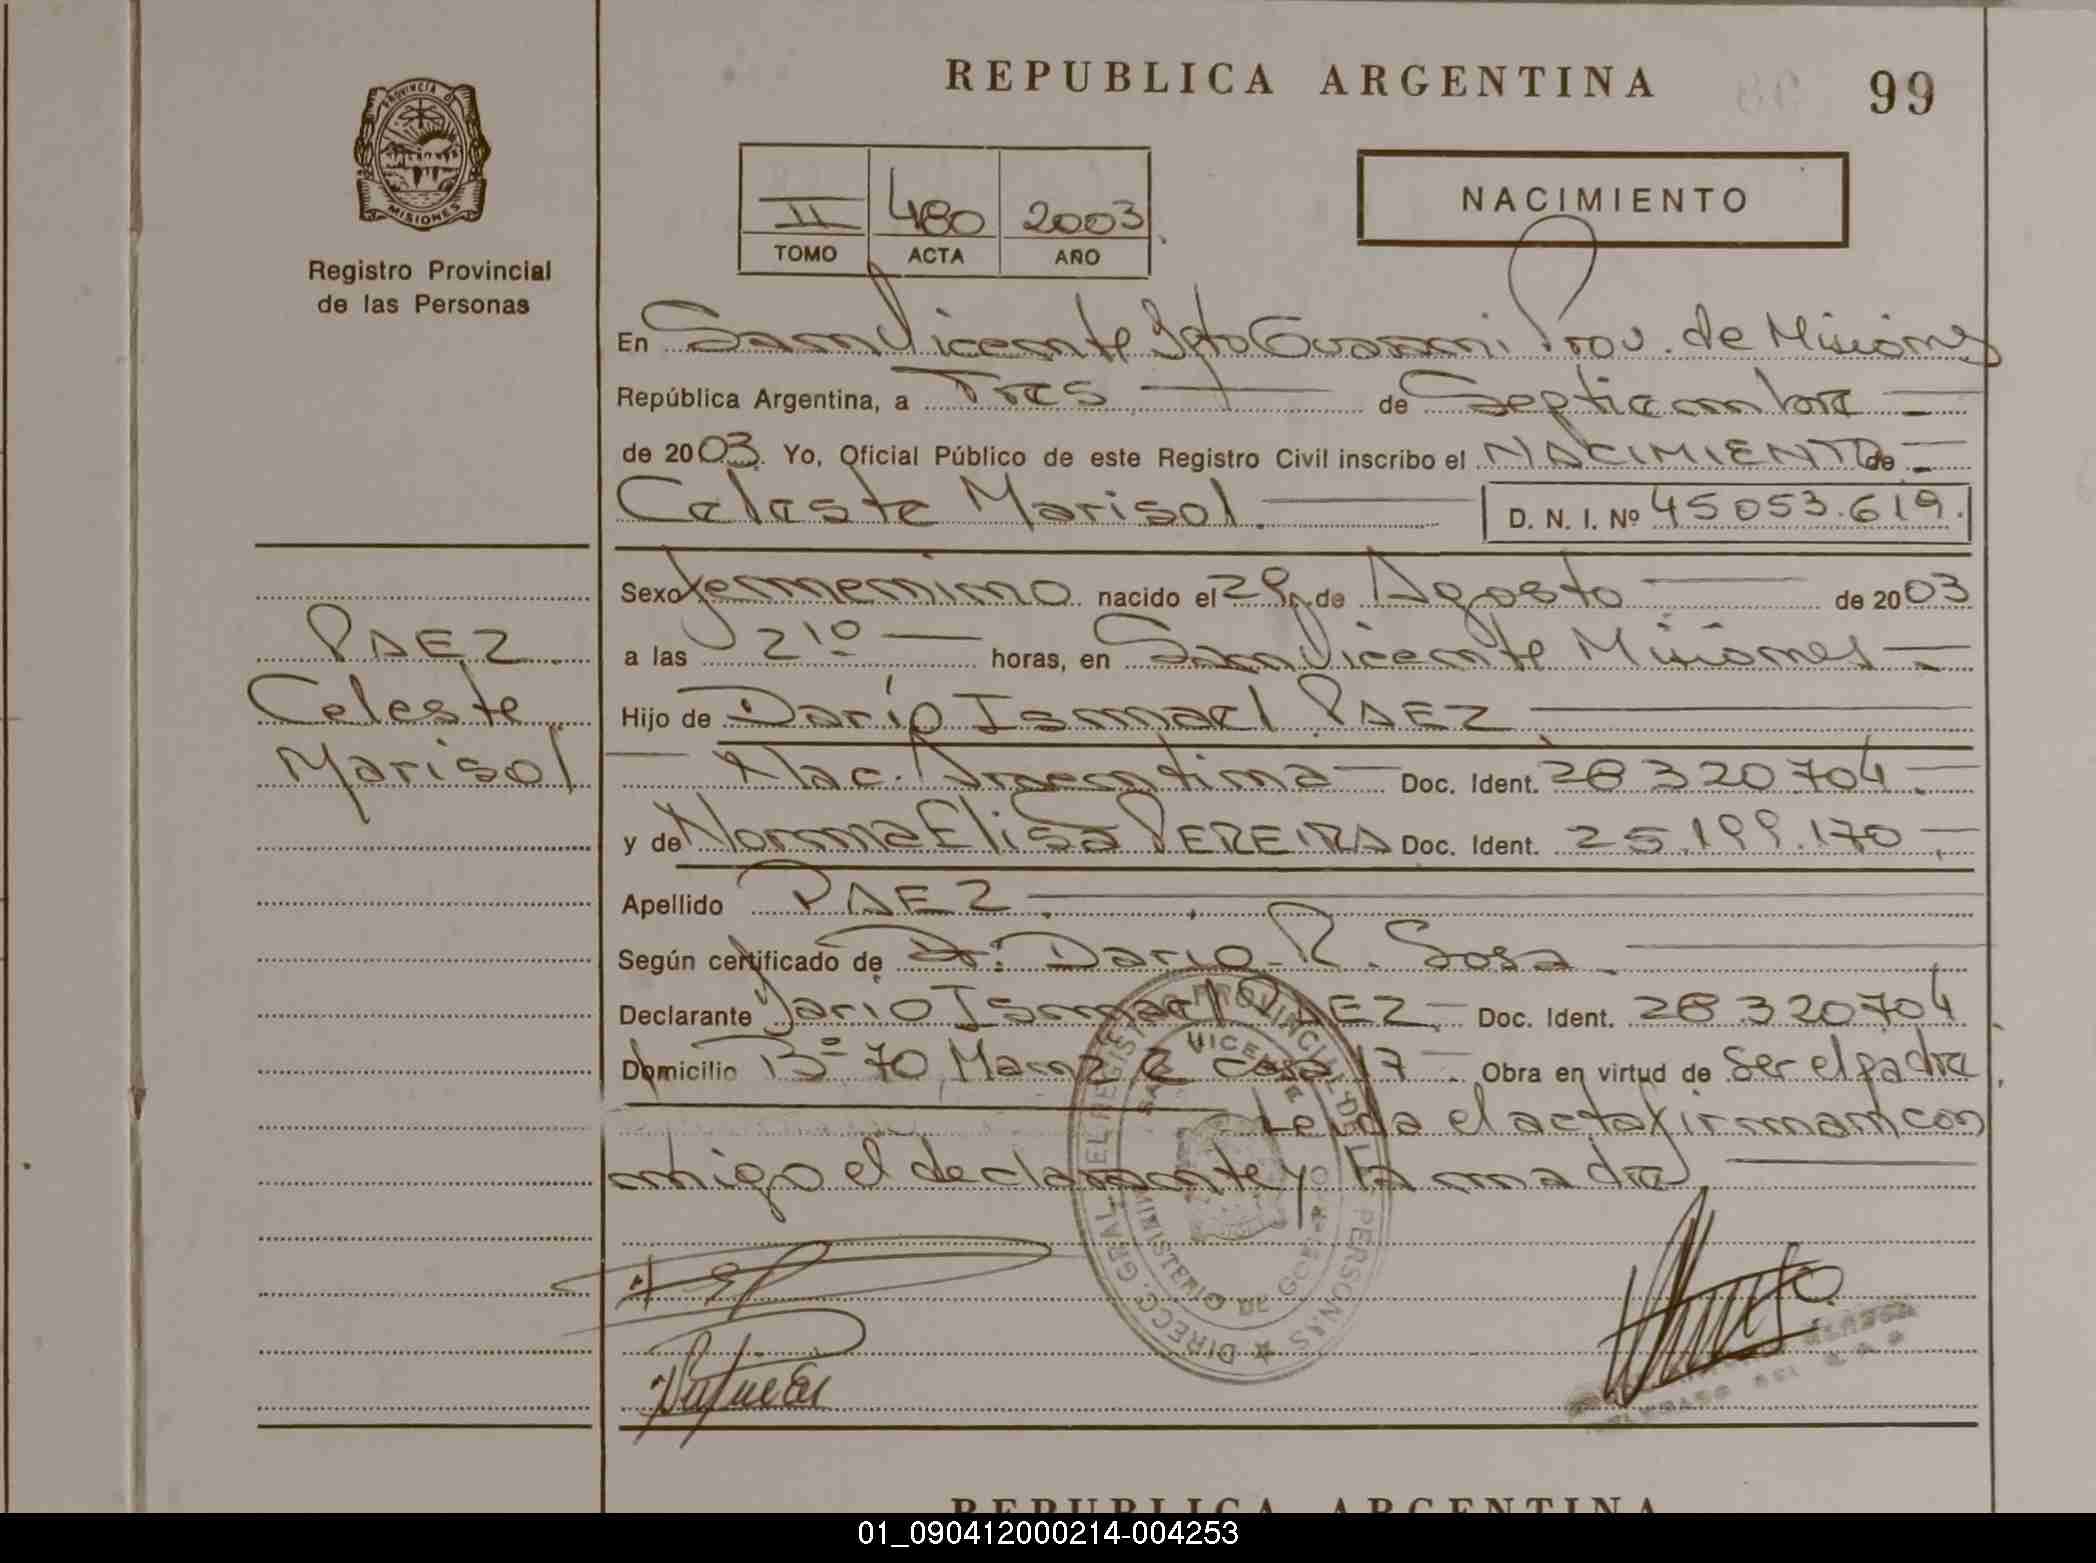 REPUBLICA ARGENTINA
99
PROVINCIA D
MISIONES
Registro Provincial
de las Personas
II 480 2003
TOMO ACTA AÑO
NACIMIENTO
En San Vicente Dpto Guarani Prov. de Misiones
República Argentina, a Tres de Septiembre
de 2003. Yo, Oficial Público de este Registro Civil inscribo el NACIMIENTO de
Celeste Marisol. D. N. I. Nº 45053.619.
Sexo femenino nacido el 29 de Agosto de 2003
a las 21º horas, en San Vicente Misiones
Hijo de Darío Ismael PAEZ
Nac. Argentina Doc. Ident. 28320704
y de Norma Elisa PEREIRA Doc. Ident. 25.199.170
Apellido PAEZ
Según certificado de Dr. Dario R. Sosa
Declarante Dario Ismael PAEZ Doc. Ident. 28320704
Domicilio Bº 70 Manz casa 17 Obra en virtud de Ser el padre
Leida el acta firman con
migo el declarante y la madre
PAEZ
Celeste
Marisol
DIRECC. GRAL. DEL REGISTRO PROVINCIAL DE PERSONAS
MINISTERIO DE GOB
REPUBLICA ARGENTINA
01_090412000214-004253